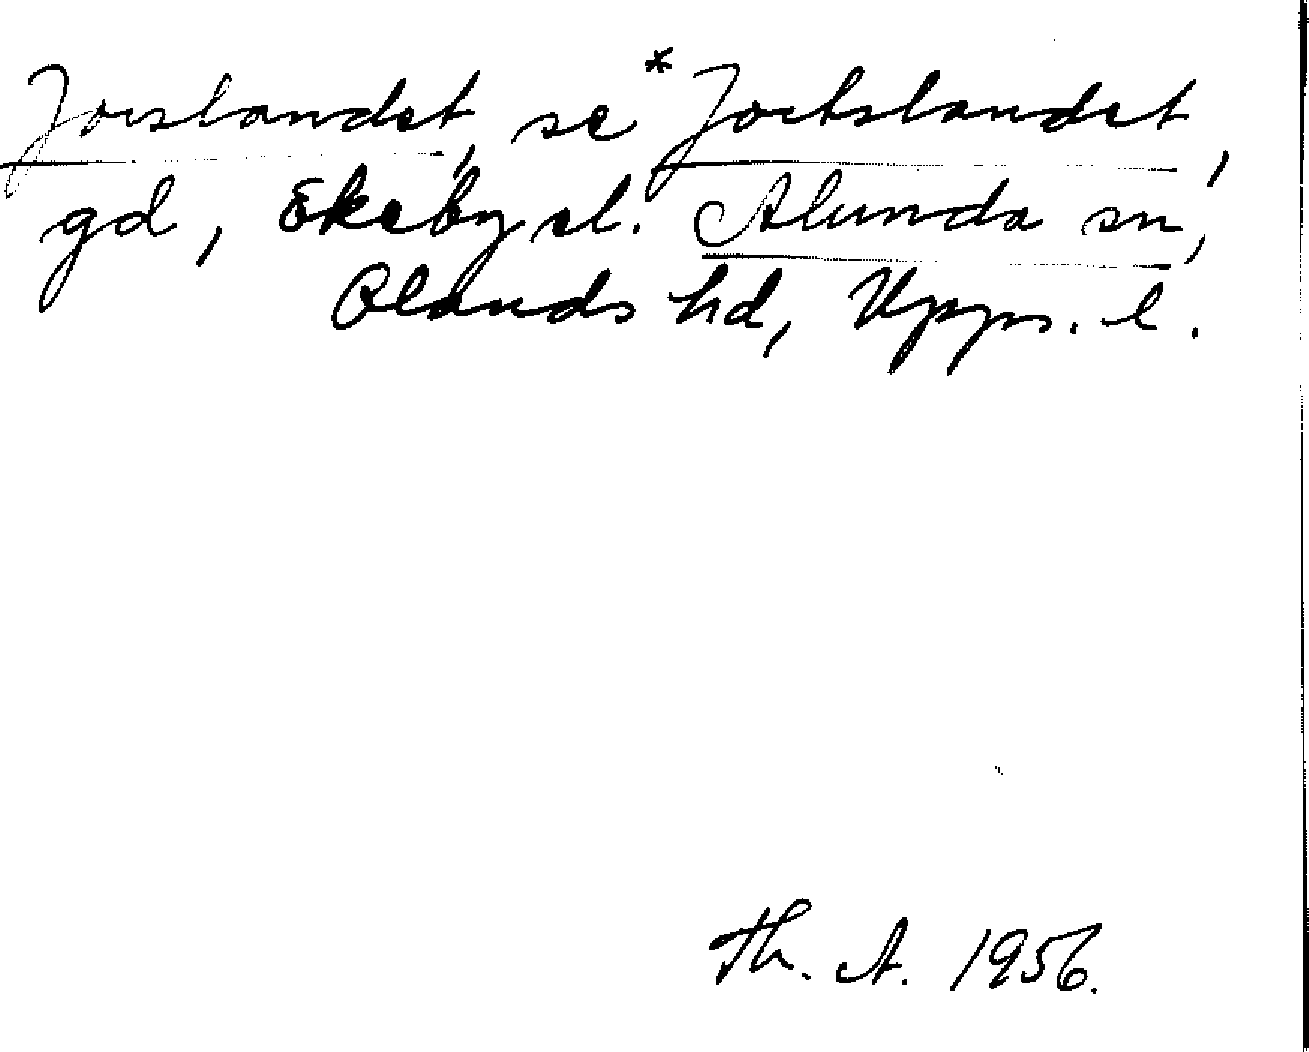 Jorslandet, se *Jortslandet,
gd, Ekeby el. Alunda sn,
Olands hd, Upps. l.
Th. A. 1956.